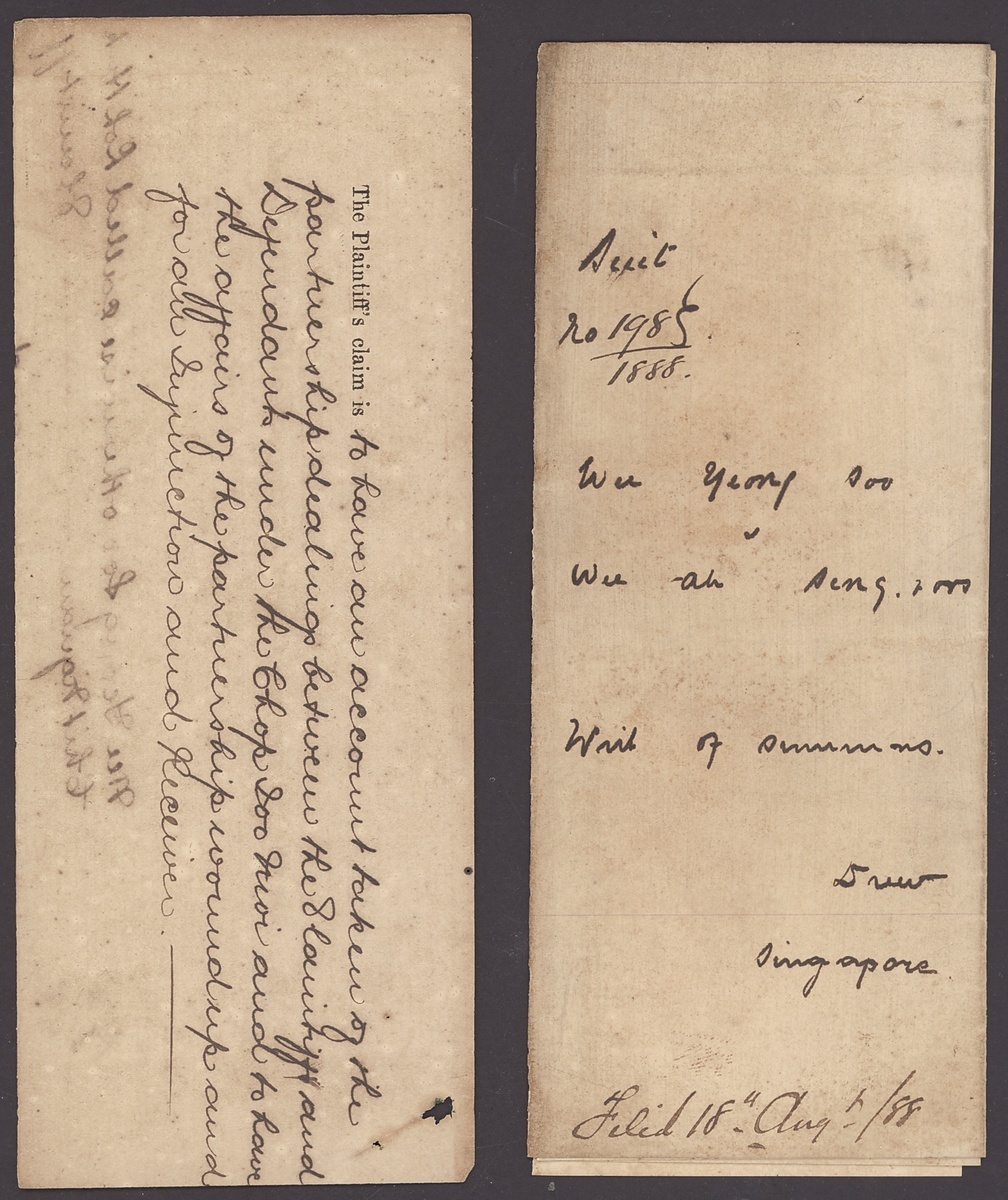 The Plaintiff's claim is to have an account taken of the
partnership dealings between the Plaintiff and
Defendants under the Chop Soo Kwi and to have
the affairs of the partnership wound up and
for an Injunction and Receiver.
Suit
No 1985
1888.
Wee Yeong Soo
v
Wee Ah Seng. & ors
Writ of summons.
Drew
Singapore
Filed 18th Augt /88